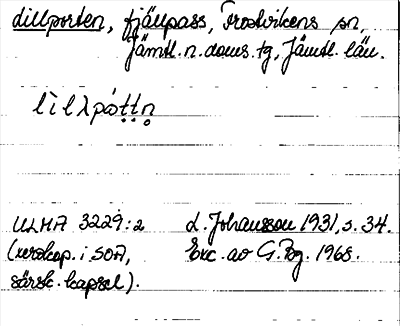 dillporten, fjällpass, Frostvikens sn,
Jämtl. n. doms. tg, Jämtl. län.
ULMA 3229:2 L. Johansson 1931, s. 34.
(verskop. i SOA, Exc. av G. Bg. 1968.
särsk. kapsel).